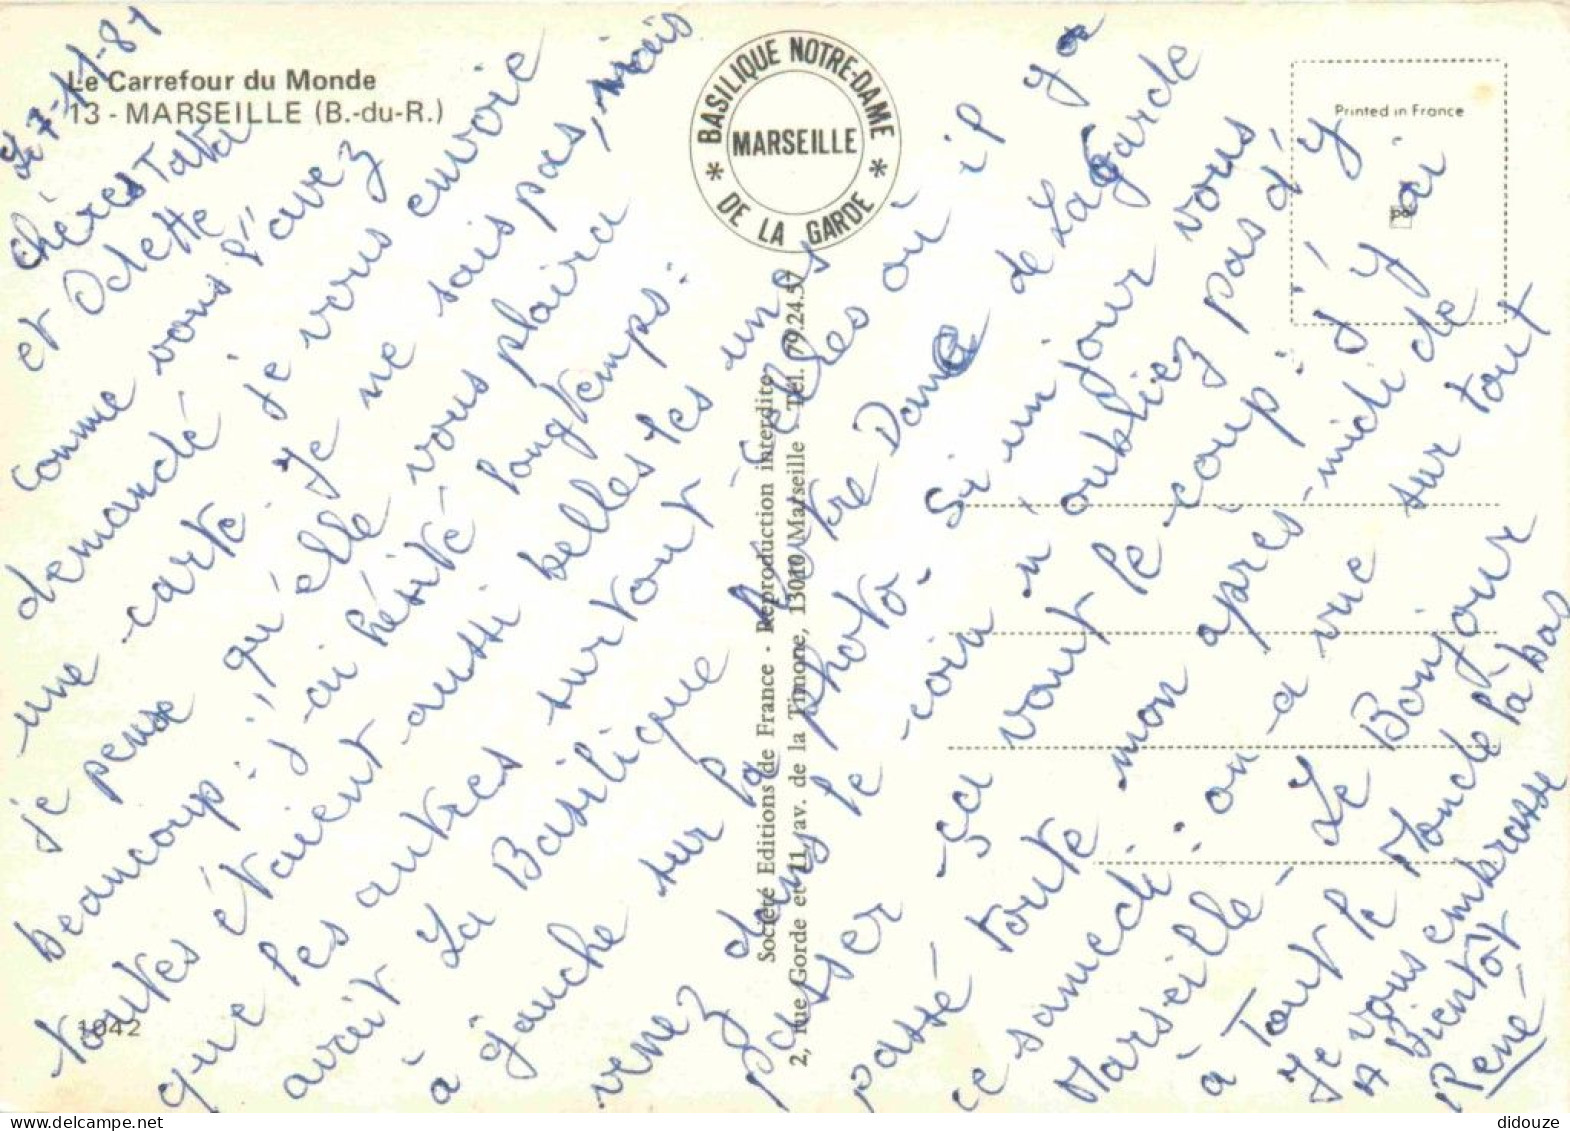 Le Carrefour du Monde
13 - MARSEILLE (B.-du-R.)
BASILIQUE NOTRE-DAME
DE LA GARDE
MARSEILLE
Printed in France
Société Editions de France - Reproduction interdite
2, rue Gorde et 11, av. de la Timone, 13010 Marseille - Tél. 79.24.57
1042
Le 7-11-81
chères Tata
et Odette
comme vous l'avez
demandé je vous envoie
une carte. Je ne sais pas, mais
je pense qu'elle vous plaira
beaucoup: j'ai hésité longtemps:
toutes étaient aussi belles les unes
que les autres surtout celles où il y a
avait La Basilique Notre Dame de La Garde
à gauche sur la photo. Si un jour vous
venez dans le coin n'oubliez pas d'y
passer ça vaut le coup: j'y ai
passé toute mon après-midi de
ce samedi: on a vue sur tout
Marseille - Le Bonjour
à Tout le Monde là bas
Je vous embrasse
A Bientôt
René
didouze